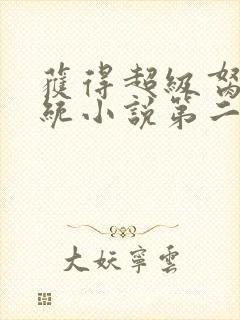 獲得超級
統小說第二
大妖寧雲